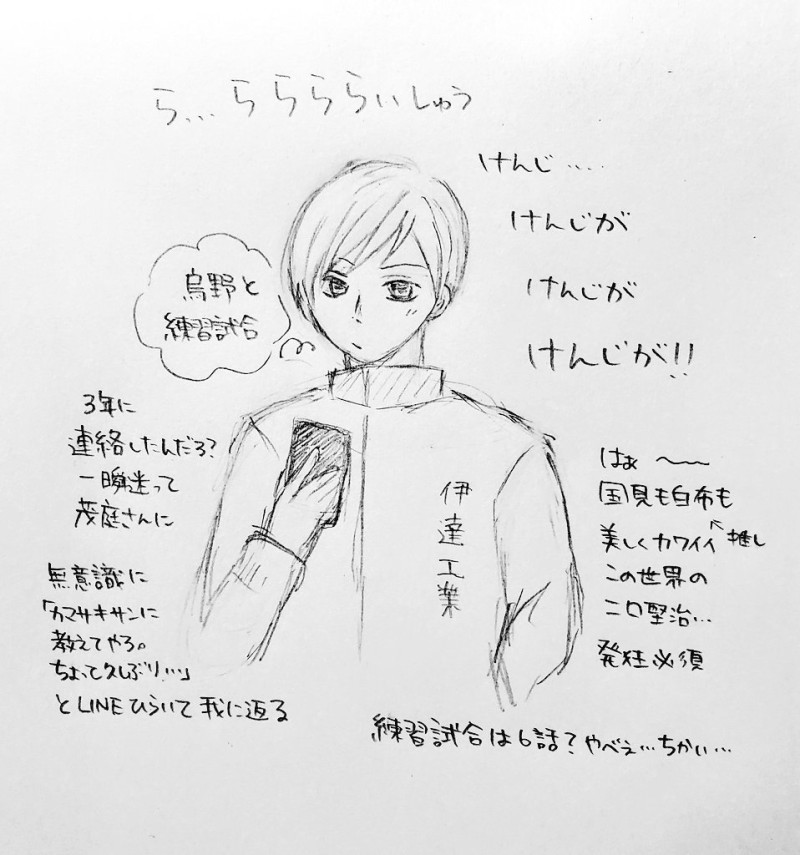 ら…らららぃしゅう
けんじ….
けんじが
けんじが
けんじが!!
烏野と
練習試合
3年に
連絡したんだろ?
一瞬迷って
茂庭さんに
無意識に
「カマサキサンに
教えてやろ。
ちょって久しぶり…」
とLINEひらいて我に返る
伊達工業
はぁ〜〜
国見も白布も
美しくカワイイ
↖推し
この世界の
二口堅治…
発狂必須
練習試合は6話?やべぇ…ちかい…